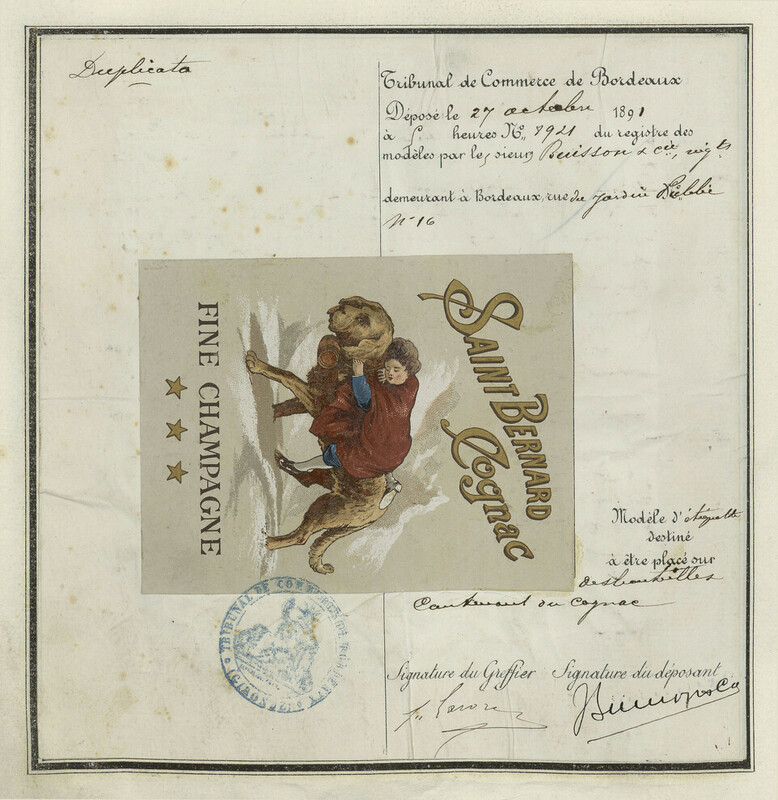 Duplicata
Tribunal de Commerce de Bordeaux
Déposé le 27 octobre 1891
à heures Nº 8921 du registre des
modèles par les sieurs Buisson & cie, négts
demeurant à Bordeaux, rue du Jardin
Nº 16
SAINT BERNARD
Cognac
FINE CHAMPAGNE
Modèle d'étiquette
destiné
à être placé sur
des bouteilles
Contenant du Cognac
TRIBUNAL DE COMMERCE
Signature du Greffier Signature du déposant